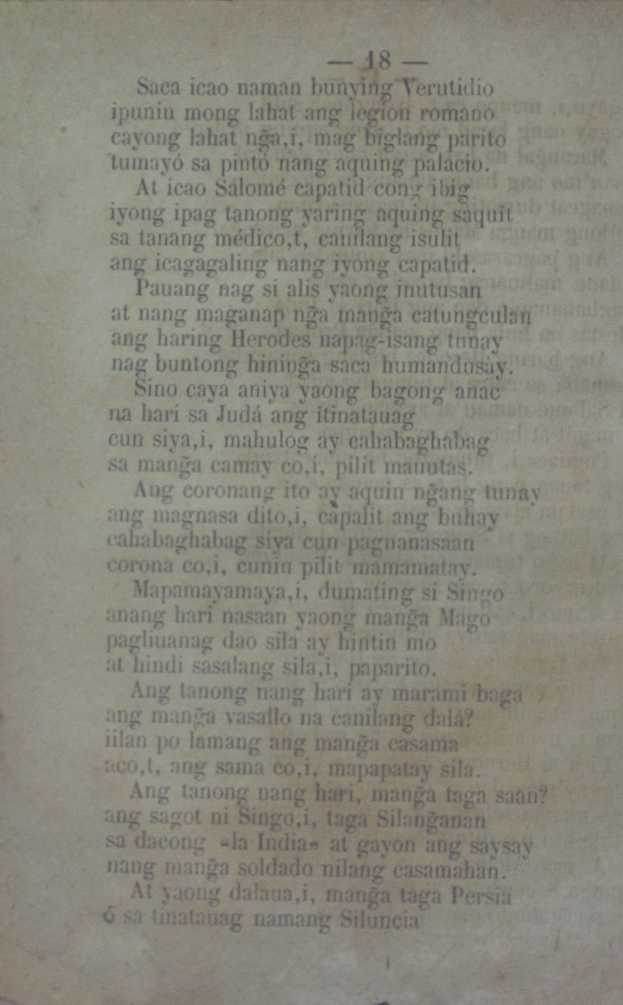 — 18 —
Saca icao naman bunying Verutidio
ipunin mong lahat ang legion romano
cayong lahat ng̃a,i, mag biglang parito
tumayó sa pintó nang aquing palacio.
At icao Salomé capatid cong ibig
iyong ipag tanong yaring aquing saquit
sa tanang médico,t, canilang isulit
ang icagagaling nang iyong capatid.
Pauang nag si alis yaong inutusan
at nang maganap ng̃a mang̃a catungculan
ang haring Herodes napag-isang tunay
nag buntong hining̃a saca humandusay.
Sino caya aniya yaong bagong anac
na hari sa Judá ang itinatauag
cun siya,i, mahulog ay cahabaghabag
sa mang̃a camay co,i, pilit mautas.
Ang coronang ito ay aquin ng̃ang tunay
ang magnasa dito,i, capalit ang buhay
cahabaghabag siya cun pagnanasaan
corona co,i, cunin pilit mamamatay.
Mapamayamaya,i, dumating si Singo
anang hari nasaan yaong mang̃a Mago
pagliuanag dao sila ay hintin mo
at hindi sasalang sila,i, paparito.
Ang tanong nang hari ay marami baga
ang mang̃a vasallo na canilang dalá?
iilan po lamang ang mang̃a casama
aco,t, ang sama co,i, mapapatay sila.
Ang tanong nang hari, mang̃a taga saan?
ang sagot ni Singo,i, taga Silang̃anan
sa dacong «la India» at gayon ang saysay
nang mang̃a soldado nilang casamahan.
At yaong dalaua,i, mang̃a taga Persia
ó sa tinatauag namang Siluncia